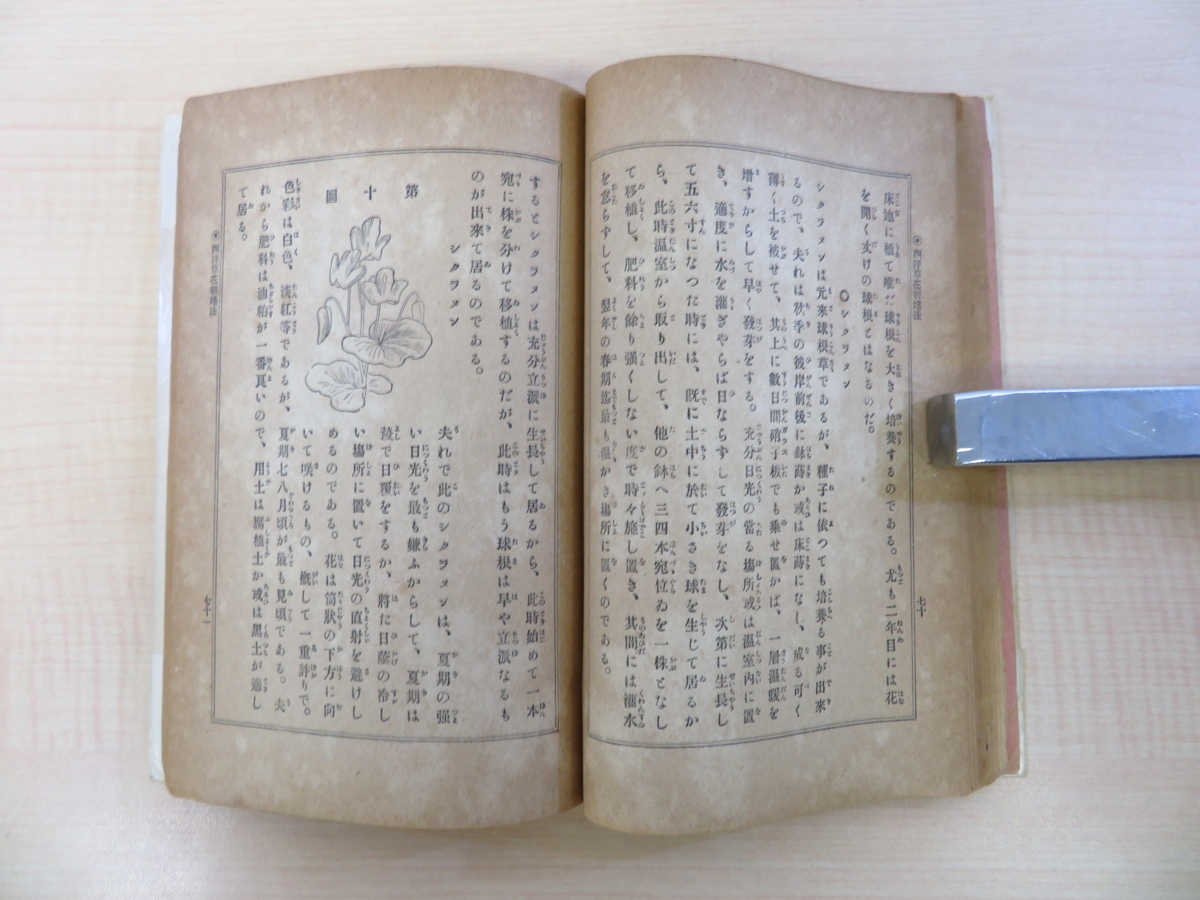 西洋草花栽培法
七十
床地に植て唯だ球根を大きく培養するのである。尤も二年目には花
を開く丈けの球根とはなるのだ。
○シクラメン
シクラメンは元來球根草であるが、種子に依つても培養る事が出來
るので、夫れは秋季の彼岸前後に鉢蒔か或は床蒔になし、成る可く
薄く土を被せて、其上に數日間硝子板でも乗せ置かば、一層溫暖を
增すからして早く發芽をする。充分日光の當る塲所或は溫室內に置
き、適度に水を灌ぎやらば日ならずして發芽をなし、次第に生長し
て五六寸になつた時には、既に土中に於て小さき球を生じて居るか
ら、此時溫室から取り出して、他の鉢へ三四本宛位ゐを一株となし
て移植し、肥料を餘り强くしない度で時々施し置き、其間には灌水
を怠らずして、翌年の春期迄最も溫かき塲所に置くのである。
するとシクラメンは充分立派に生長して居るから、此時始めて一本
宛に株を分けて移植するのだが、此時はもう球根は早や立派なるも
のが出來て居るのである。
シクラメン
第十圖
夫れで此のシクラメンは、夏期の强
い日光を最も嫌ふからして、夏期は
葭で日覆をするか、將に日蔭の冷し
い塲所に置いて日光の直射を避けし
めるのである。花は筒狀の下方に向
いて咲けるもの、槪して一重許りで。
色彩は白色、淡紅等であるが、夏期七八月頃が最も見頃である。夫
れから肥料は油粕が一番良いので、用土は腐植土か或は黑土が適し
て居る。
西洋草花栽培法
七十一